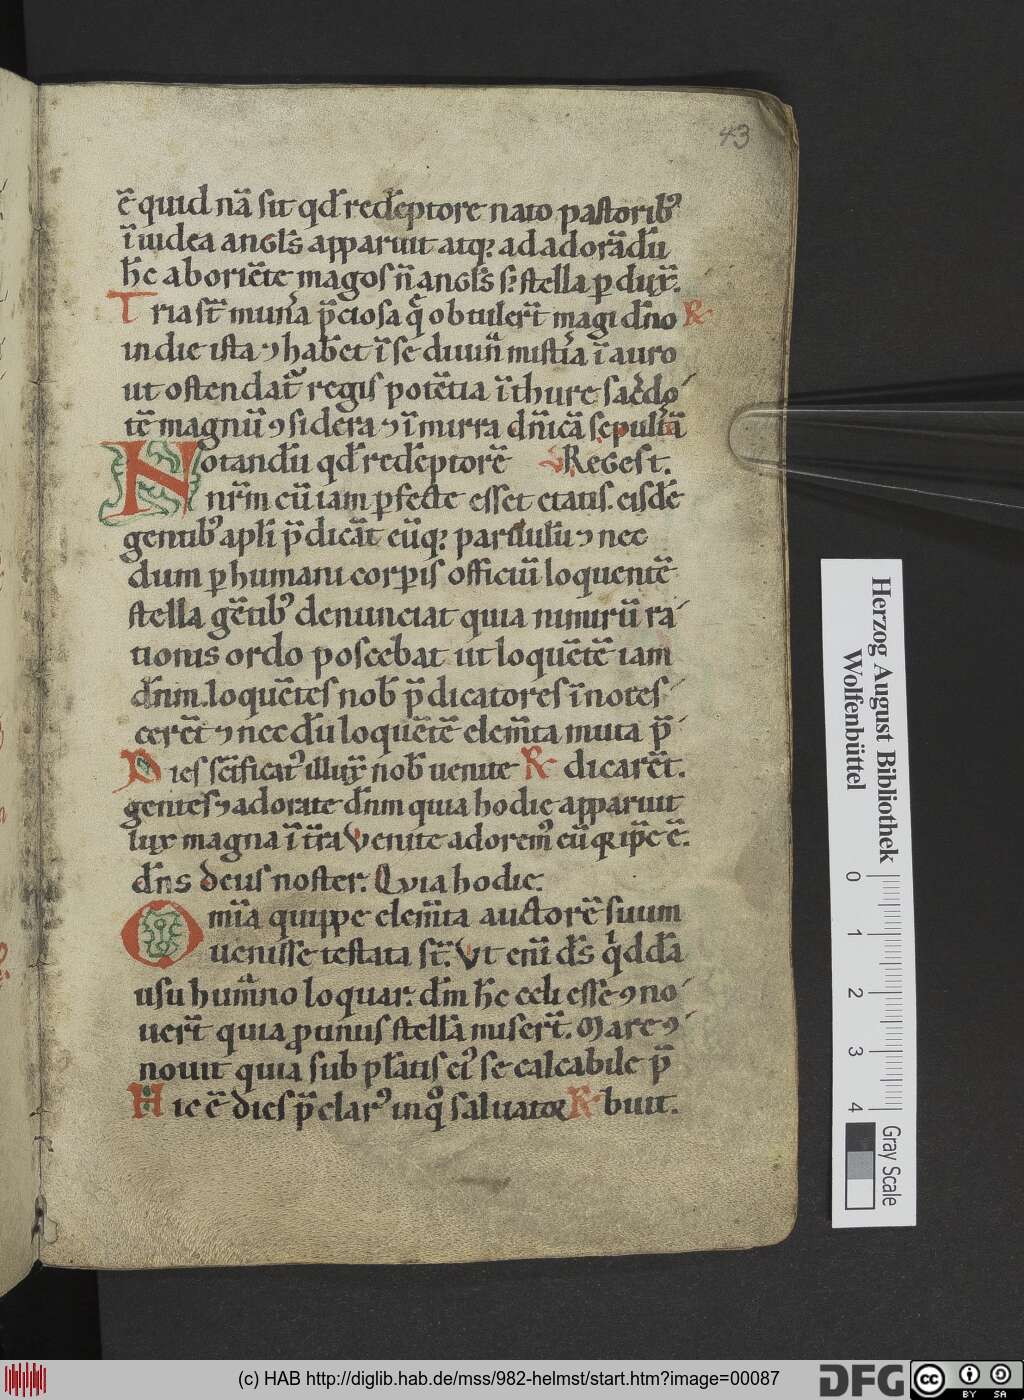 43
ē quid nā sit qđ redēptore nato pastoribꝰ
ī iudea angłs apparuit atqꝫ ad adorādū
h̄c ab oriēte magos n̄ angłs sꝫ stella ꝑduxͭ.
Tria st̄ munᵃ p̄ciosa q̄ obtulert̄ magi dn̄o ℟
in die ista ⁊ hab̄et ī se diuinᵃ mistͥia ī auro
ut ostendatͬ regis potētia ī thure sac̄do
tē magnū ⁊ sidera ⁊ ī mirra dn̄icā sepultᵃā
Notandū qđ redēptorē ℣ Reges t.
nr̄m cū iam ꝑfecte esset etatis. eisdē
gentibꝰ apłi p̄dicāt eūqꝫ paruulū ⁊ nec
dum ꝑ humani corꝑis officiū loquentē
stella gētibꝰ denunciat quia nimirū ra
tionis ordo poscebat ut loquētē iam
dn̄m. loquētes nob̄ p̄dicatores īnotes
cerēt ⁊ nec dū loquētē elem̄ta muta p̄
Dies sc̄ificatꝰ illuxͭ nob̄ uenite ℟ dicarēt.
gentes ⁊ adorate dn̄m quia hodie apparuit
lux magna ī tr̄a Venite adoremꝰ eū qꝛ ip̄e ē.
dn̄s deus noster. Quia hodie.
Om̄ia quippe elem̄ta auctorē suum
uenisse testata st̄. Vt enī dē ͥs qͥddā
usu humᵃno loquar. dm̄ h̄c celi esse ⁊ no
uert̄ quia ꝓtinus stellā misert̄. Mare ⁊
nouit quia sub plātis eiꝰ se calcabile p̄
Hic ē dies p̄clarꝰ in qͦ saluator ℟ buit.
Herzog August Bibliothek
Wolfenbüttel
0 1 2 3 4
Gray Scale
(c) HAB http://diglib.hab.de/mss/982-helmst/start.htm?image=00087
DFG
cc BY SA